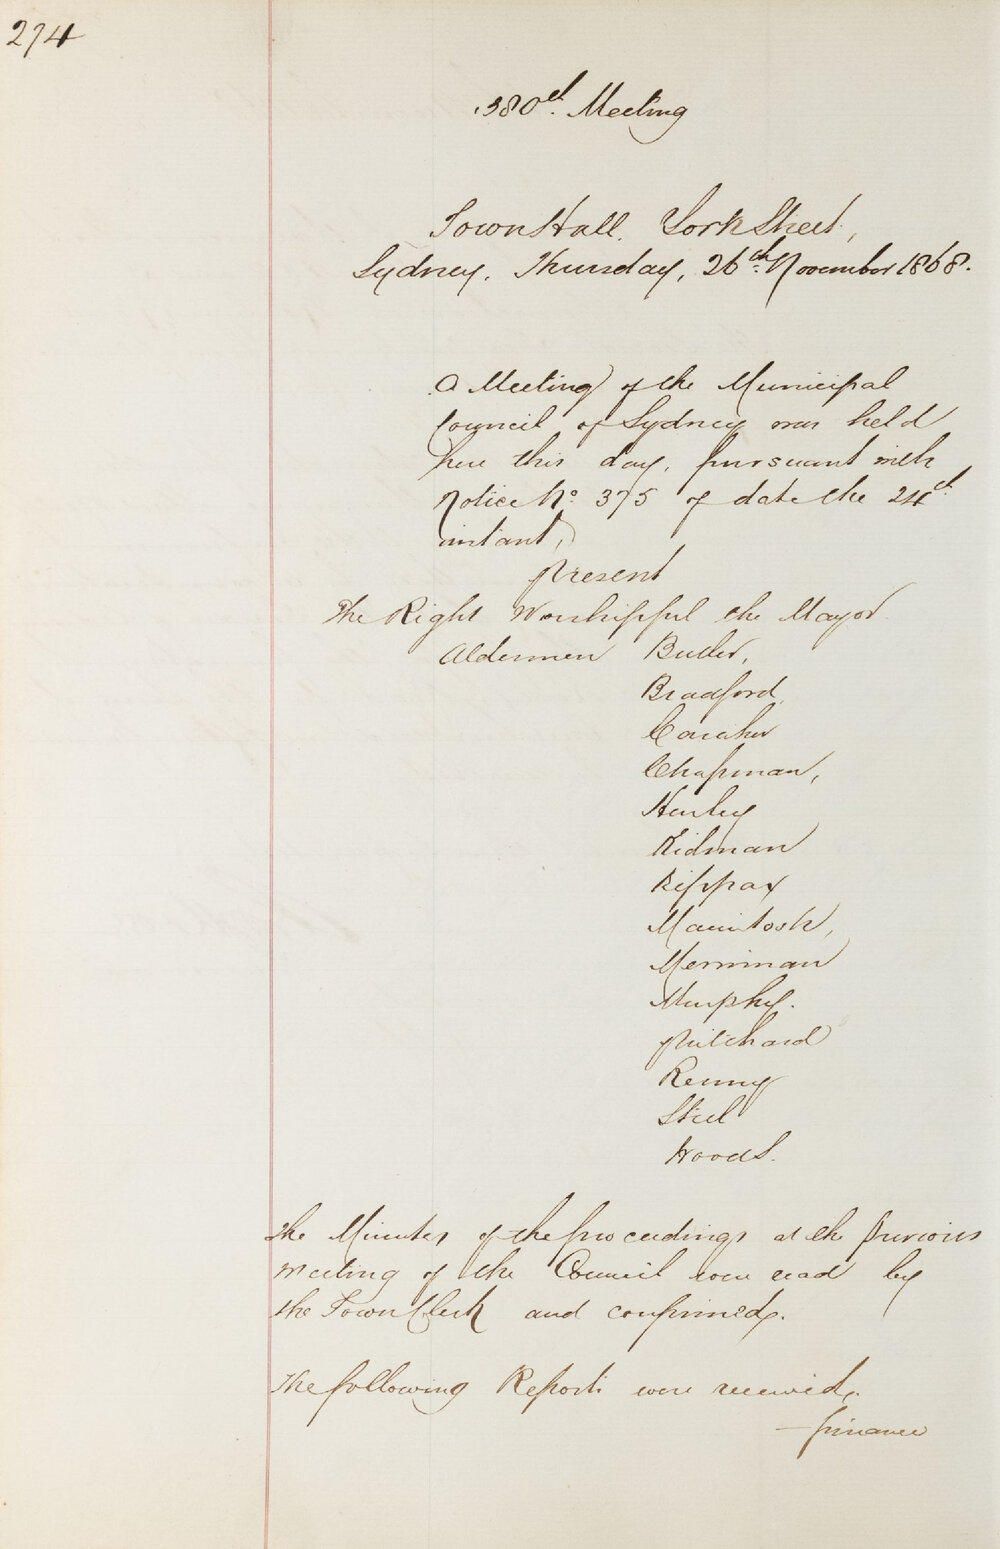 274
380th. Meeting
Town Hall. York Street,
Sydney. Thursday, 26th. November 1868.
A Meeting of the Municipal
Council of Sydney was held
here this day, pursuant with
Notice No. 375 of date the 24th.
instant,
Present
The Right Worshipful the Mayor
Aldermen Butler,
Bradford,
Caraher
Chapman,
Hurley
Kidman
Kippax
Macintosh,
Merriman
Murphy.
Pritchard
Renny
Steel
Woods.
The Minutes of the proceedings at the previous
meeting of the Council were read by
the Town Clerk and confirmed.
The following Reports were received.
— Finance